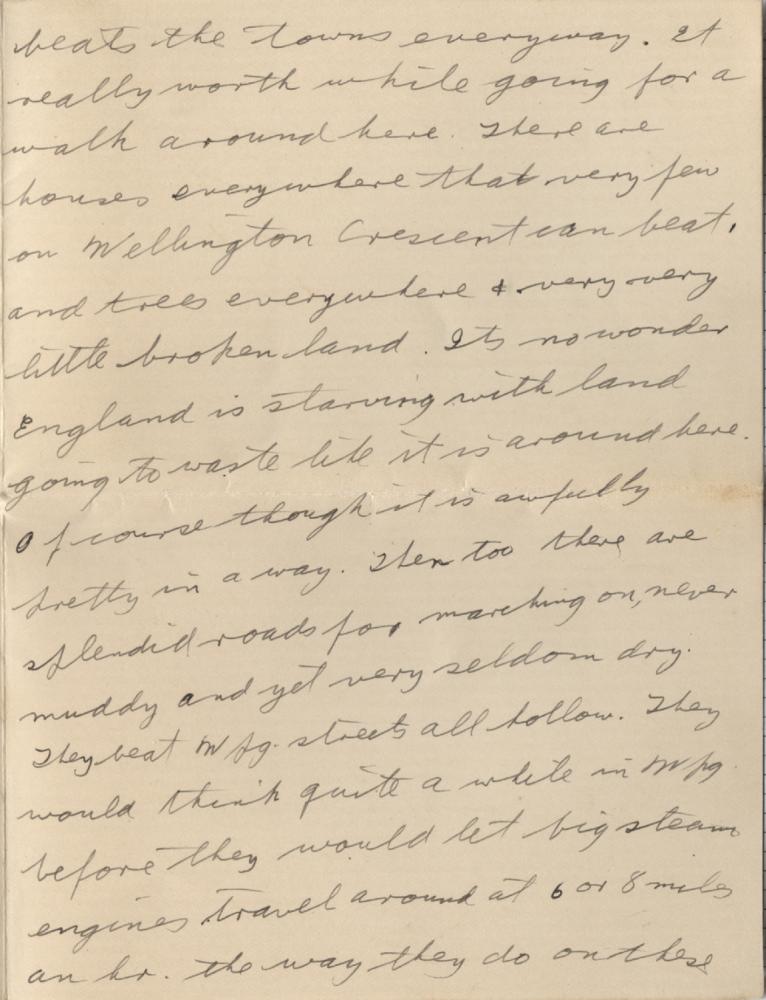 beats the towns everyway. It
really worth while going for a
walk around here. There are
houses everywhere that very few
on Wellington Crescent can beat,
and trees everywhere & very very
little broken land. Its no wonder
England is starving with land
going to waste like it is around here.
Of course though it is awfully
pretty in a way. Then too there are
splendid roads for marching on, never
muddy and yet very seldom dry.
They beat Wpg. streets all hollow. They
would think quite a while in Wpg.
before they would let big steam
engines travel around at 6 or 8 miles
an hr. the way they do on these